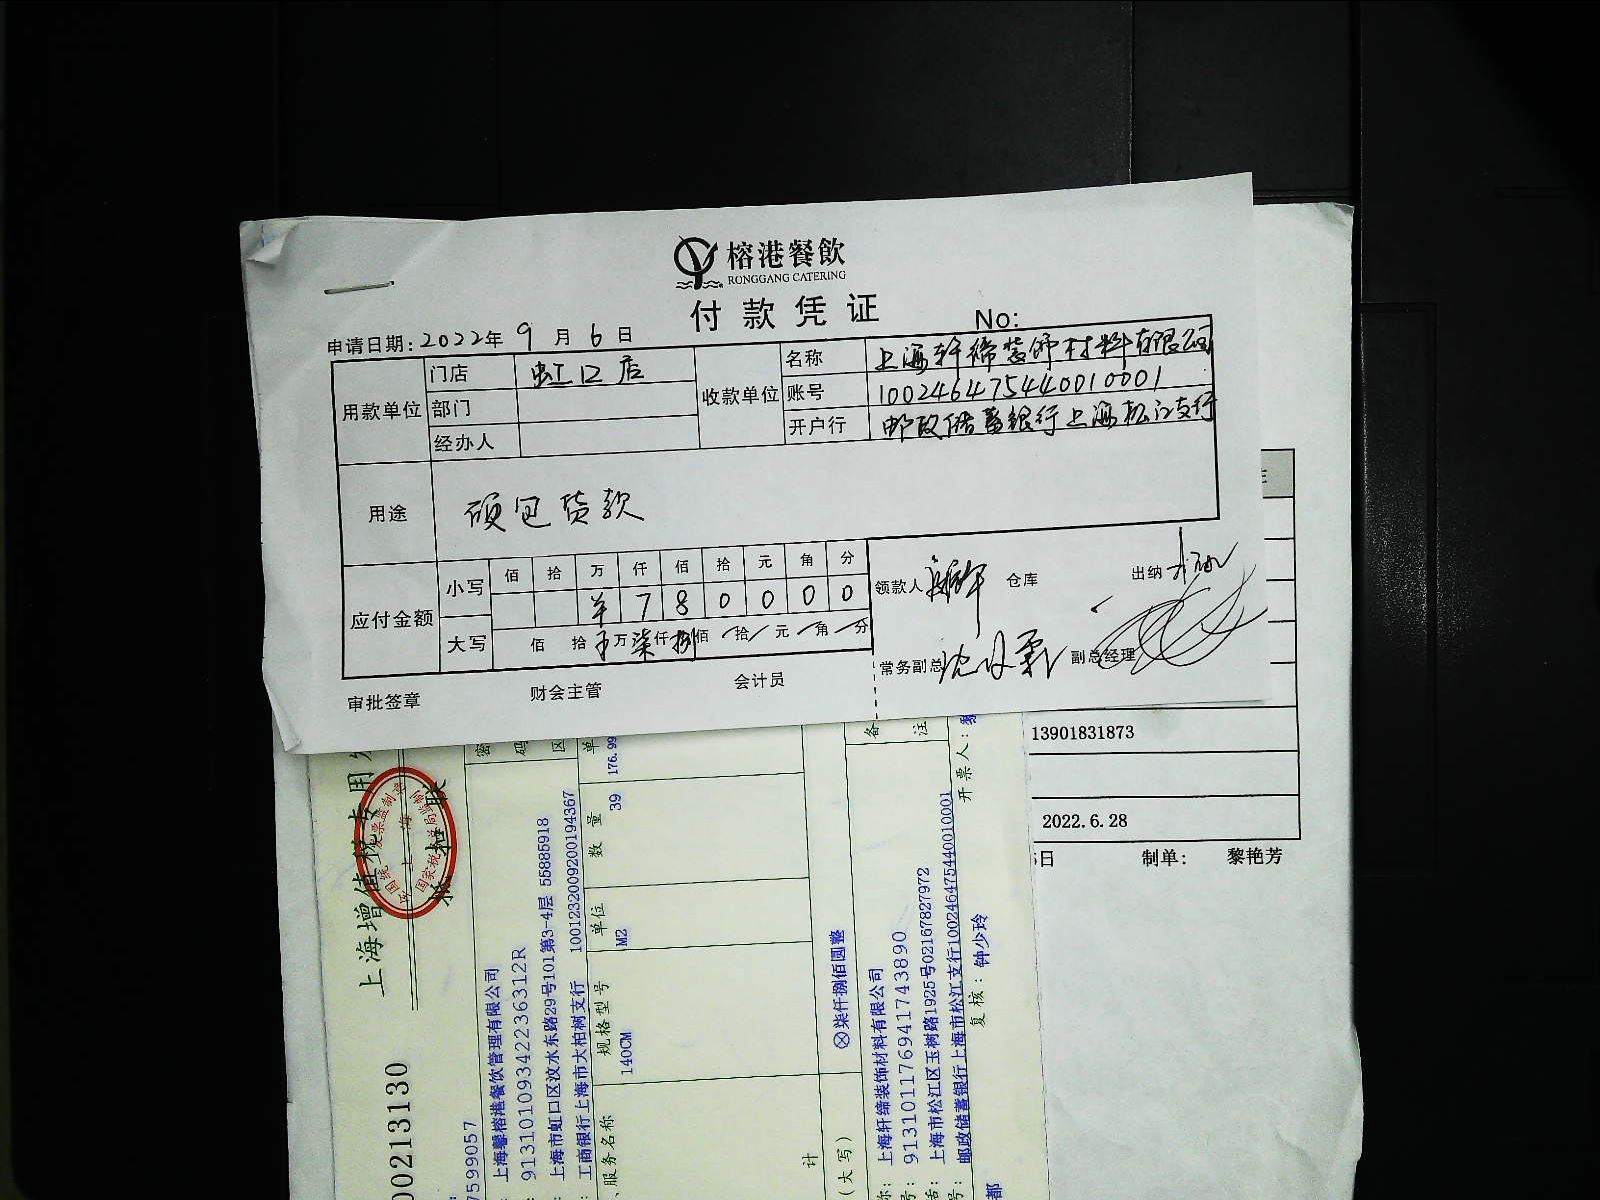 榕港餐飲
RONGGANG CATERING
付款凭证
No:
申请日期:2022年9月6日
用款单位
门店 虹口店
部门
经办人
收款单位
名称 上海轩缔装饰材料有限公司
账号 100246475440010001
开户行 邮政储蓄银行上海松江支行
用途 硬包货款
应付金额
小写
佰 拾 万 仟 佰 拾 元 角 分
¥ 7 8 0 0 0 0
大写 佰 拾 万 柒仟 捌佰 拾 元 角 分
领款人 仓库 出纳
常务副总 副总经理
审批签章 财会主管 会计员
13901831873
2022.6.28
日 制单: 黎艳芳
00213130
上海增值税专用发
抵扣联
上海
7599057
上海馨榕港餐饮管理有限公司
91310109342236312R
上海市虹口区汶水东路29号101第3-4层 55885918
工商银行上海市大柏树支行 1001232009200194367
密码区
服务名称 规格型号 单位 数量 单
140CM M2 39 176.99
计
(大写) ⊗柒仟捌佰圆整
上海轩缔装饰材料有限公司
913101176941743890
上海市松江区玉树路1925号02167827972
邮政储蓄银行上海市松江支行100246475440010001
备注
复核: 钟少玲 开票人: 黎